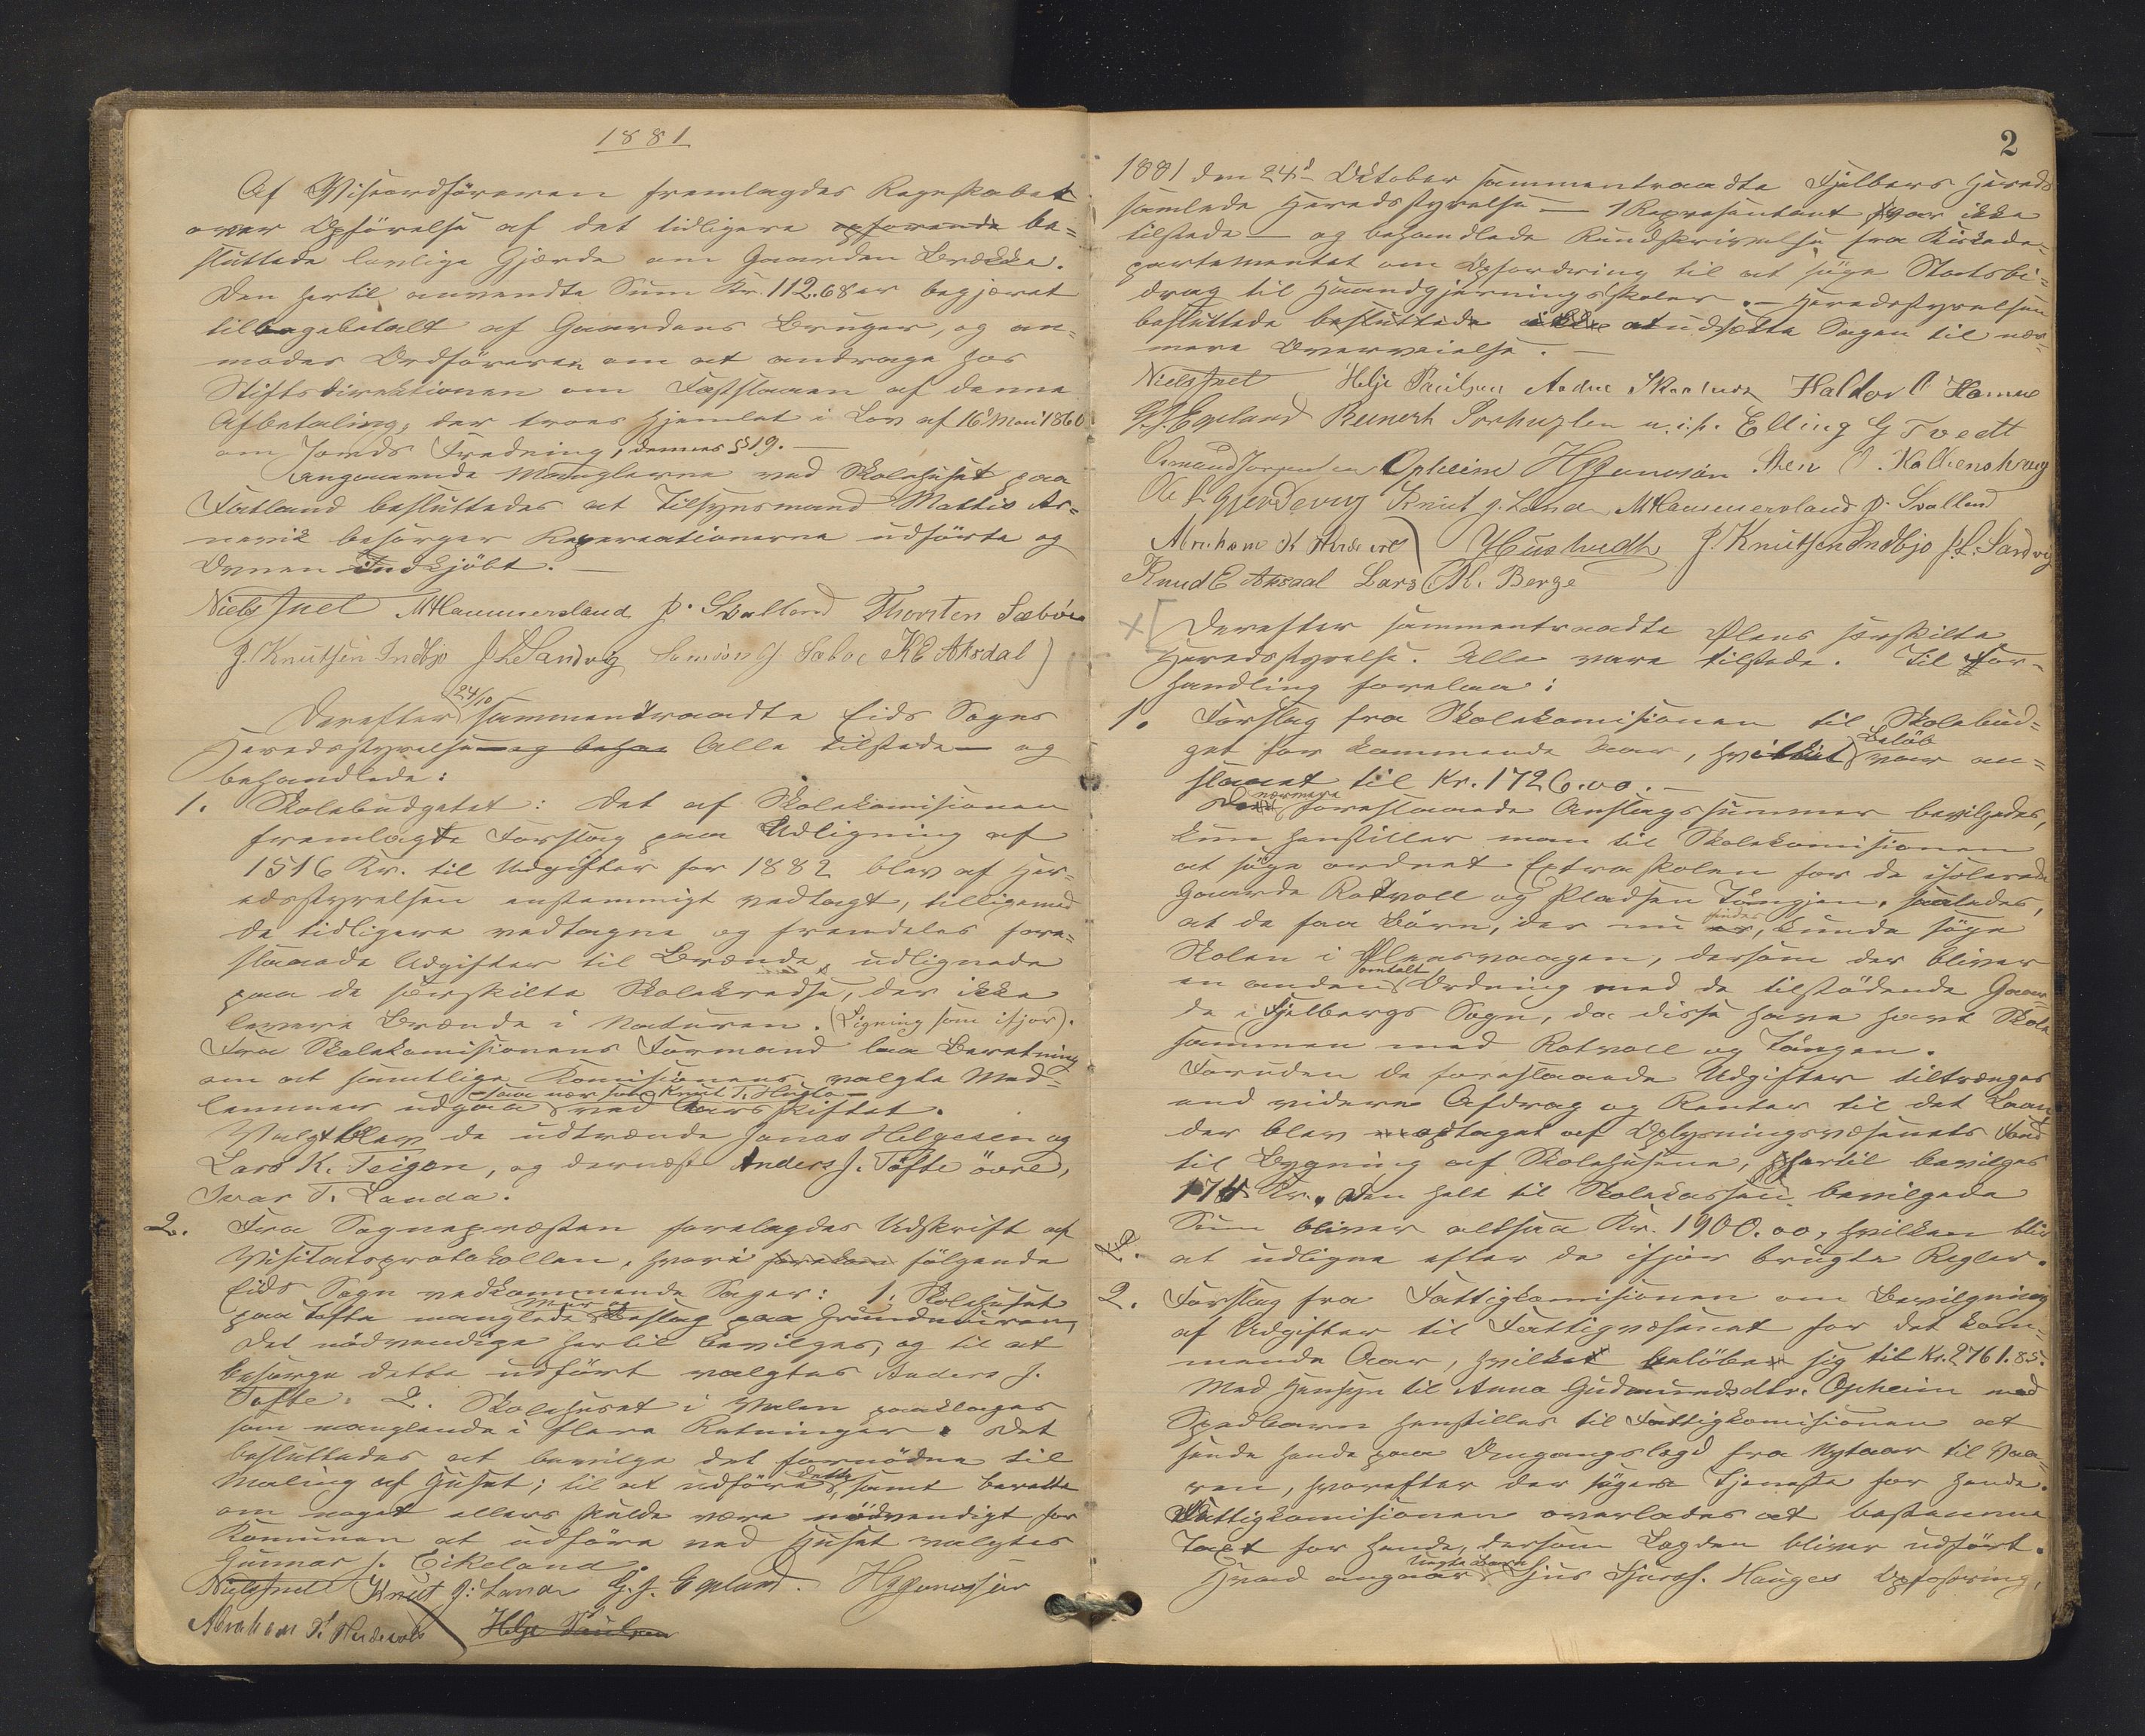 1881
Af Viseordföreren fremlagdes Regnskabet
over Opförelse af det tidligere opforende be=
sluttede lovlige Gjærde om Gaarden Brække.
Den hertil anvendte Sum Kr. 112.68 er begjæret
tilbagebetalt af Gaardens Bruger, og an=
modes Ordföreren om at andrage hos
Stiftsdirektionen om Fastslaaen af denne
Afbetaling, der troes hjemlet i Lov af 16 Mai 1860
om Jords Fredning, dennes § 19. —
Angaaende Manglerne ved Skolehuset paa
Fatland besluttedes at Tilsynsmand Mattis Ar=
nevik besörger Reparationerne udförte og
Ovnen Indkjöbt. —
Niels Juel MHammersland P. Svalland Thorsten Sæböe
J. Knutsen Indbjo J. L. Sandvig Samson J Sæboe K E Aksdal
Derefter 24/10 sammentraadte Eids Sogns
Heredsstyrelse — og behan Alle tilstede — og
behandlede:
1. Skolebudgetet: Det af Skolekomisionen
fremlagte Forslag paa Udligning af
1516 Kr. til Udgifter for 1882 blev af Her=
edsstyrelsen enstemmigt vedtagt, tilligemed
de tidligere vedtagne og fremdeles fore=
slaaede Udgifter til Brænde, udlignede
paa de særskilte Skolekredse, der ikke
levere Brænde i Naturen. (Ligning som ifjor).
Fra Skolekomisionens Formand laa Beretning
om at samtlige Komisionens valgte Med=
lemmer udgaa saa nær som Knut T. Hugla — ved Aarsskiftet.
Valgt blev de udtrædende Jonas Helgesen og
Lars K. Teigen, og dernæst Anders J. Tofte övre,
Ivar T. Landa.
2. Fra Sognepræsten forelagdes Udskrift af
Visitatsprotokollen, hvori forekom fölgende
Eids Sogn vedkommende Sager: 1. Skolehuset
paa Tofte manglede Beslag paa Grundmuren,
det nödvendige hertil bevilges, og til at
besörge dette udfört valgtes Anders J.
Tofte. 2. Skolehuset i Valen paaklages
som manglende i flere Retninger. Det
besluttedes at bevilge det fornödne til
Maling af Huset; til at udföre dette, samt berette
om noget ellers skulde være nödvendigt for
Komunen at udföre ved Huset valgtes
Gunnar J. Eikeland.
Niels Juel Knut J. Landa G. J. Egeland.
Helge Paulsen
2
1881 den 24d Oktober sammentraadte Fjelbergs Hereds
samlede Heredsstyrelse — 1 Repræsentant var ikke
tilstede — og behandlede Rundskrivelse fra Kirkede=
partementet om Opfordring til at söge Statsbi=
drag til Haandgjerningsskoler. — Heredsstyrelsen
besluttede besluttede ikke at udsætte Sagen til nær=
mere Overveielse. —
Niels Juel Helje Paulsen Andre Halldor O Hamre
G. J. Egeland u. i. p. Elling G Tvedt
Opheim Sten O. Kalkenskrog
Ole Gjerdevig Knut J. Landa MHammersland P. Svalland
Abraham K J. Knutsen Indbjo J. L. Sandvig
Knud E Aksdal Lars M. Berge
Derefter sammentraadte Ølens særskilte
Heredsstyrelse. Alle vare tilstede. Til For=
handling forelaa:
1. Forslag fra Skolekomisionen til Skolebud=
get for kommende Aar, hvilket Belöb var an=
slaaet til Kr. 1726.00. —
De nærmere foreslaaede Anslagssummer bevilgedes,
kun henstiller man til Skolekomisionen
at söge ordnet Extraskolen for de isolerede
Gaarde Rotvoll og Pladsen Tangjen, saaledes,
at de faa Börn, der nu er findes, kunde söge
Skolen i Ølensvaagen, dersom der bliver
en anden omtalt Ordning med de tilstödende Gaar=
de i Fjelbergs Sogn, da disse have havt Skole
sammen med Rotvoll og Tangen.
Foruden de foreslaaede Udgifter tiltrænges
end videre Afdrag og Renter til det Laan,
der blev optaget af Oplysningsvæsenets Fond
til Bygning af Skolehusene, hertil bevilges
174 Kr., den helt til Skolekassen bevilgede
Sum bliver altsaa Kr. 1900.00, hvilken blir
at udligne efter de ifjor brugte Regler.
2. Forslag fra Fattigkomisionen om Bevilgning
af Udgifter til Fattigvæsenet for det kom=
mende Aar, hvilket belöber sig til Kr. 2761.85.
Med Hensyn til Anna Gudmundsdtr. Opheim med
Spedbarn henstilles til Fattigkomisionen at
sende hende paa Omgangslægd fra Nytaar til Vaa=
ren, hvorefter der söges Tjeneste for hende.
Fattigkomisionen overlades at bestemme
Taxt for hende, dersom Lægden bliver udfört.
Hvad angaar uægte Barn Hauges Opfostring,